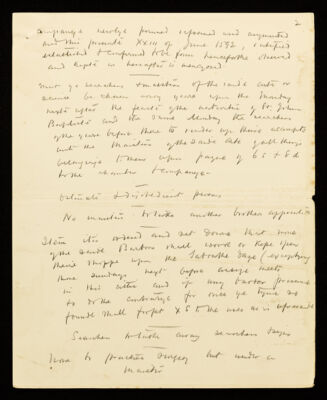 2
newlye framed reformed and augmented
and this present XXIII of June 1592, ratified
established & confirmed to be from henceforthe observed
and kepte as hereafter is mencyoned
that ye searchers & masters of the saide arte or
science be chosen every yeare upon the Sunday
next after the feaste of the nativitie of St. John
Baptiste and the same Monday the searchers
of the yeare before there to render up their accompts
unto the Maisters of the saide Arte of all things
belonginge to them upon payne of 6s & 8d
to the chamber & companye.
obstinate & disobedient persons
No master to take another brother's apprentice
Item it is ordered and set downe that none
of the saide Barbors shall worke or kepe open
their shoppe upon the Sabouthe daye (excepting
those Sundays next before assize weeks
in this cittie and if any barbor presume
to do the contrarye for once ye tyme so
founde shall forfet XS to the uses as is aforesaide
Searchers to take away
None to practise surgery but under a
Master